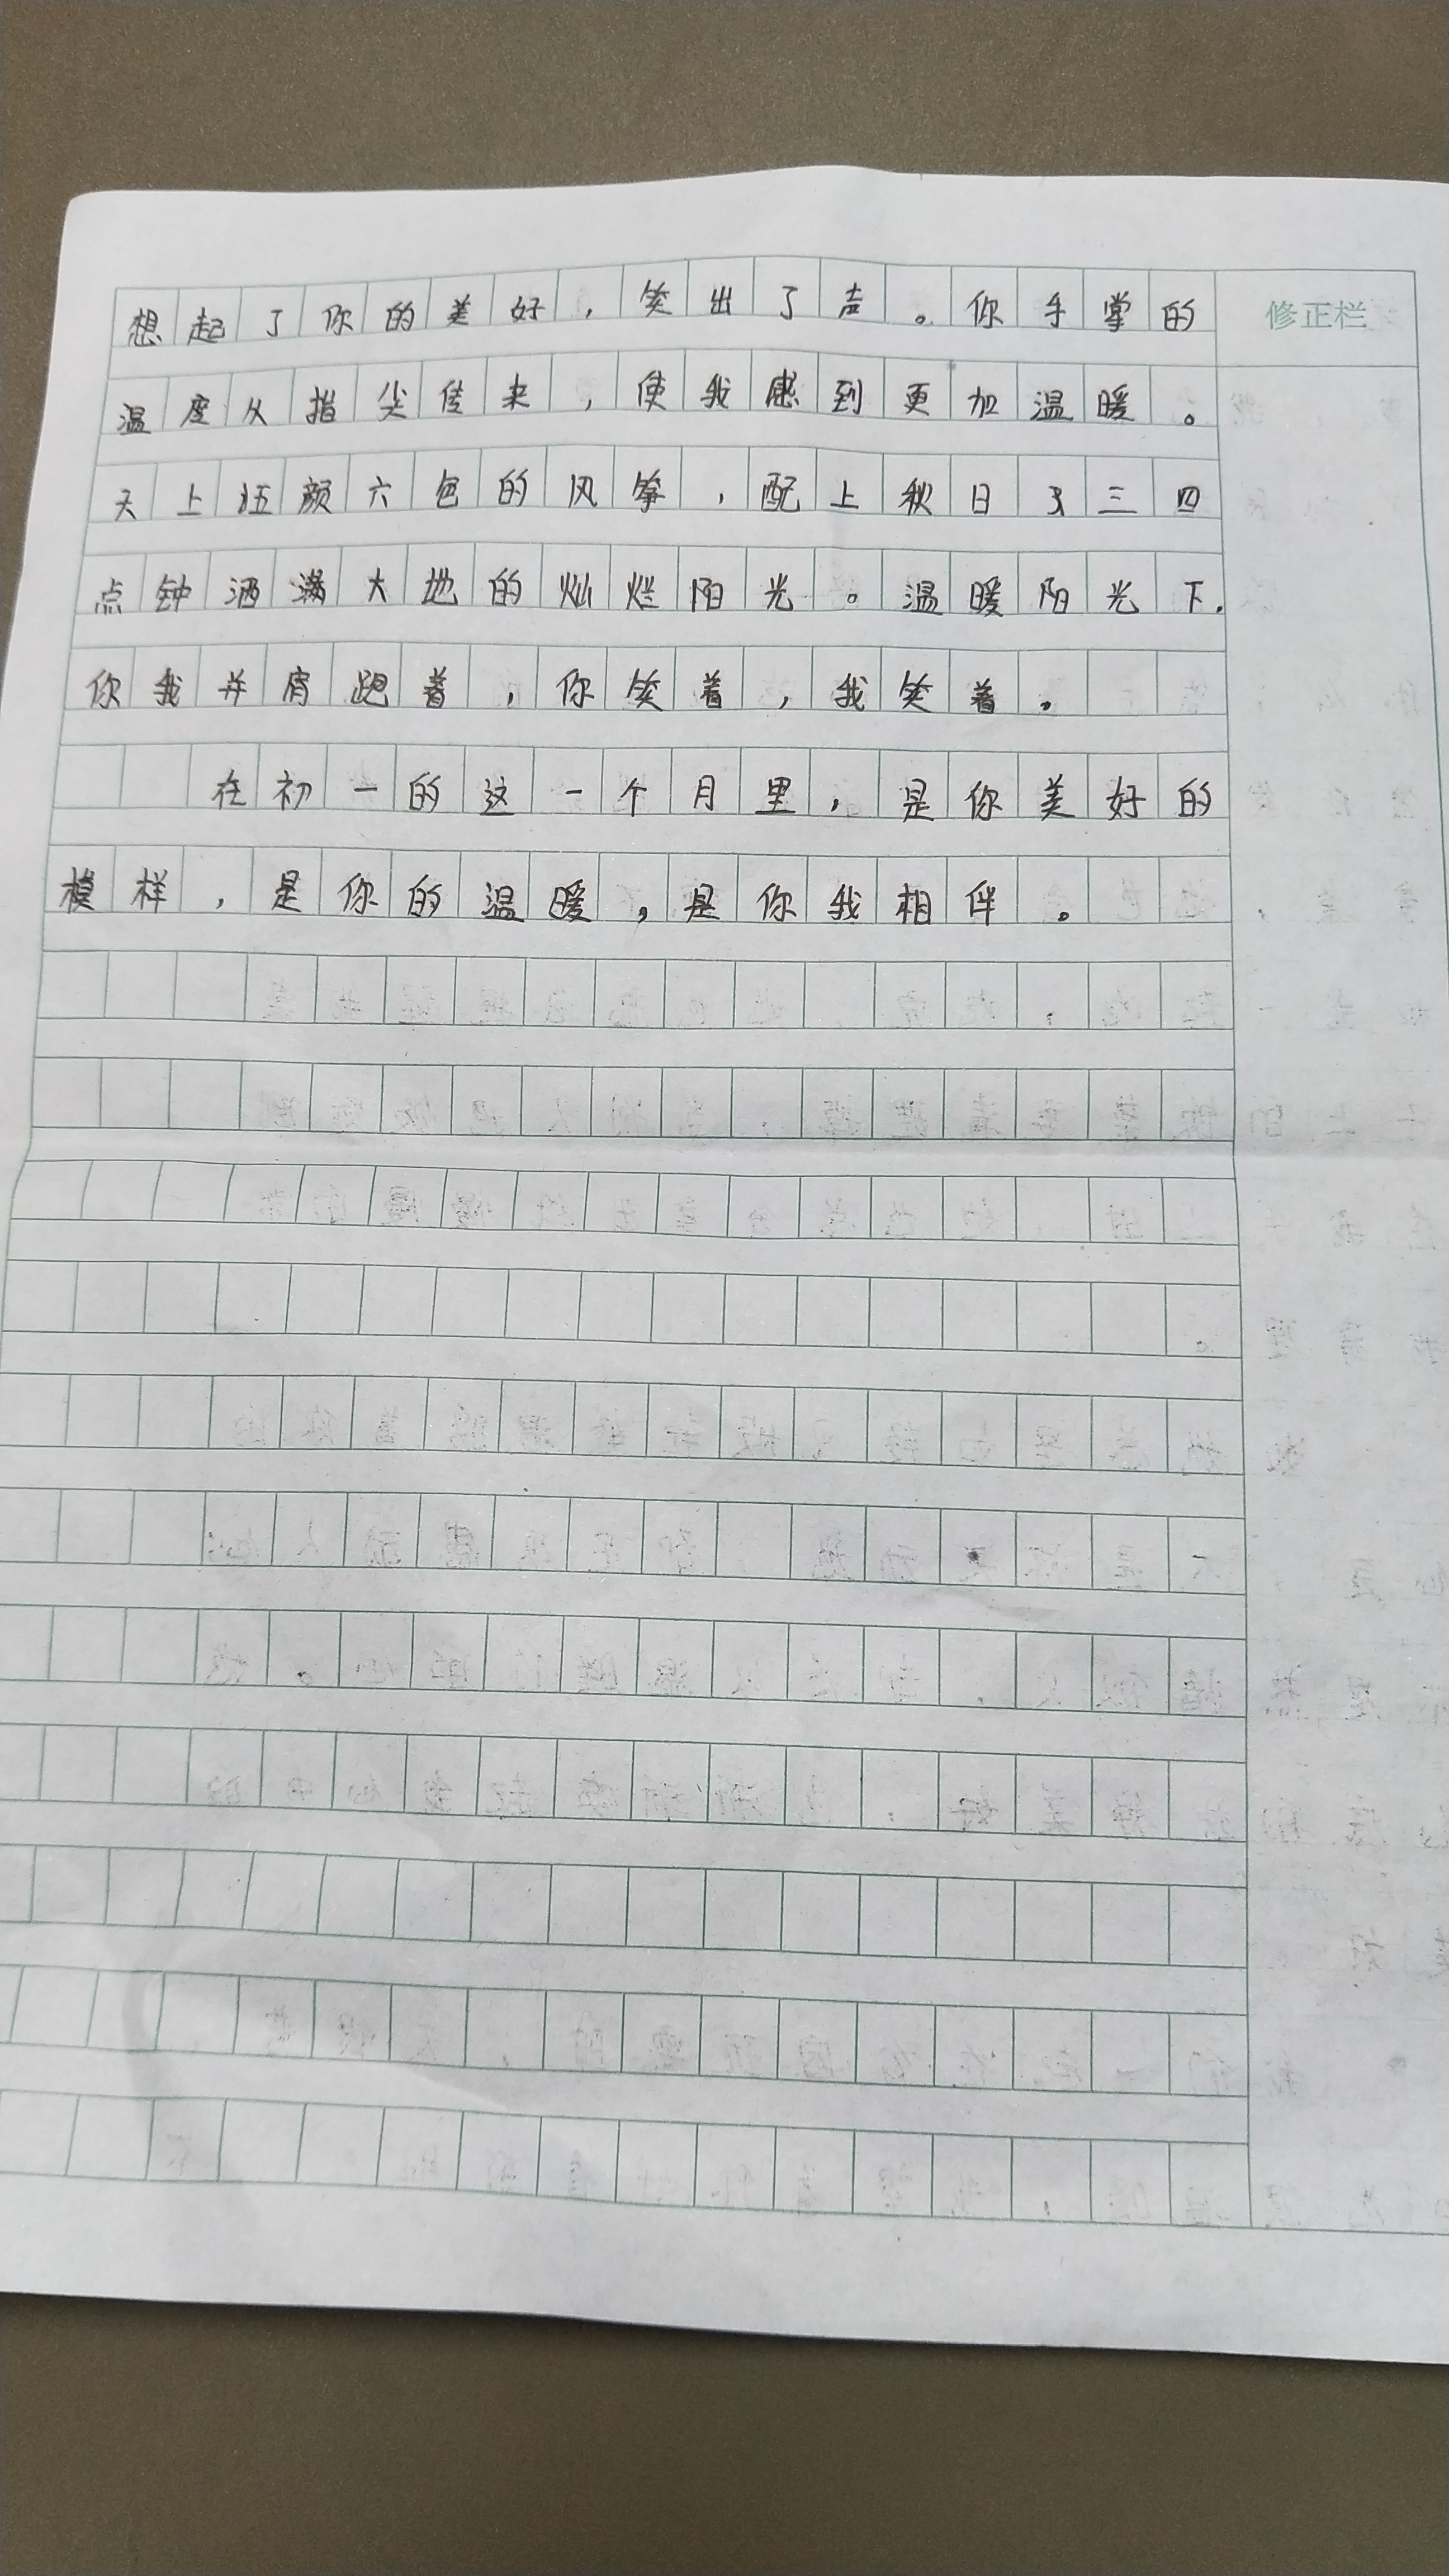 想起了你的美好，笑出了声。你手掌的
修正栏
温度从指尖传来，使我感到更加温暖。
天上五颜六色的风筝，配上秋日三四
点钟洒满大地的灿烂阳光。温暖阳光下，
你我并肩跑着，你笑着，我笑着。
在初一的这一个月里，是你美好的
模样，是你的温暖，是你我相伴。